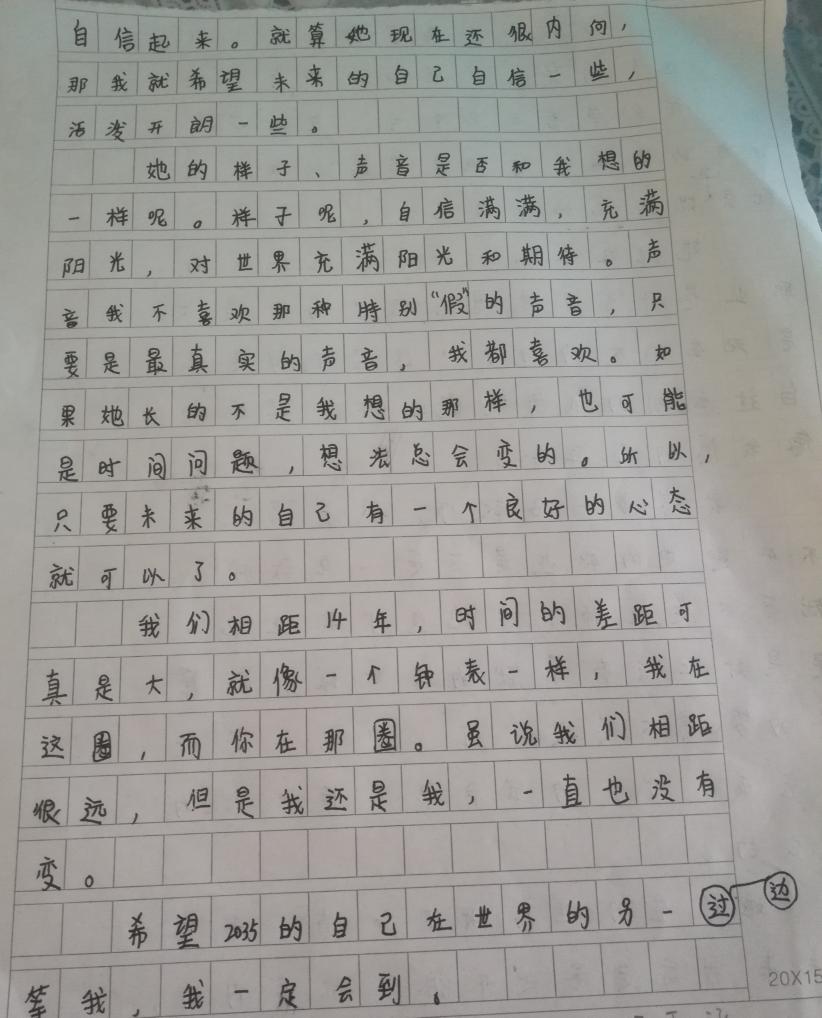 自信起来。就算她现在还很内向，
那我就希望未来的自己自信一些，
活泼开朗一些。
她的样子、声音是否和我想的
一样呢。样子呢，自信满满，充满
阳光，对世界充满阳光和期待。声
音我不喜欢那种特别“假”的声音，只
要是最真实的声音，我都喜欢。如
果她长的不是我想的那样，也可能
是时间问题，想法总会变的。所以，
只要未来的自己有一个良好的心态
就可以了。
我们相距14年，时间的差距可
真是大，就像一个钟表一样，我在
这圈，而你在那圈。虽说我们相距
很远，但是我还是我，一直也没有
变。
希望2035的自己在世界的另一过 边
等我，我一定会到。
20X15